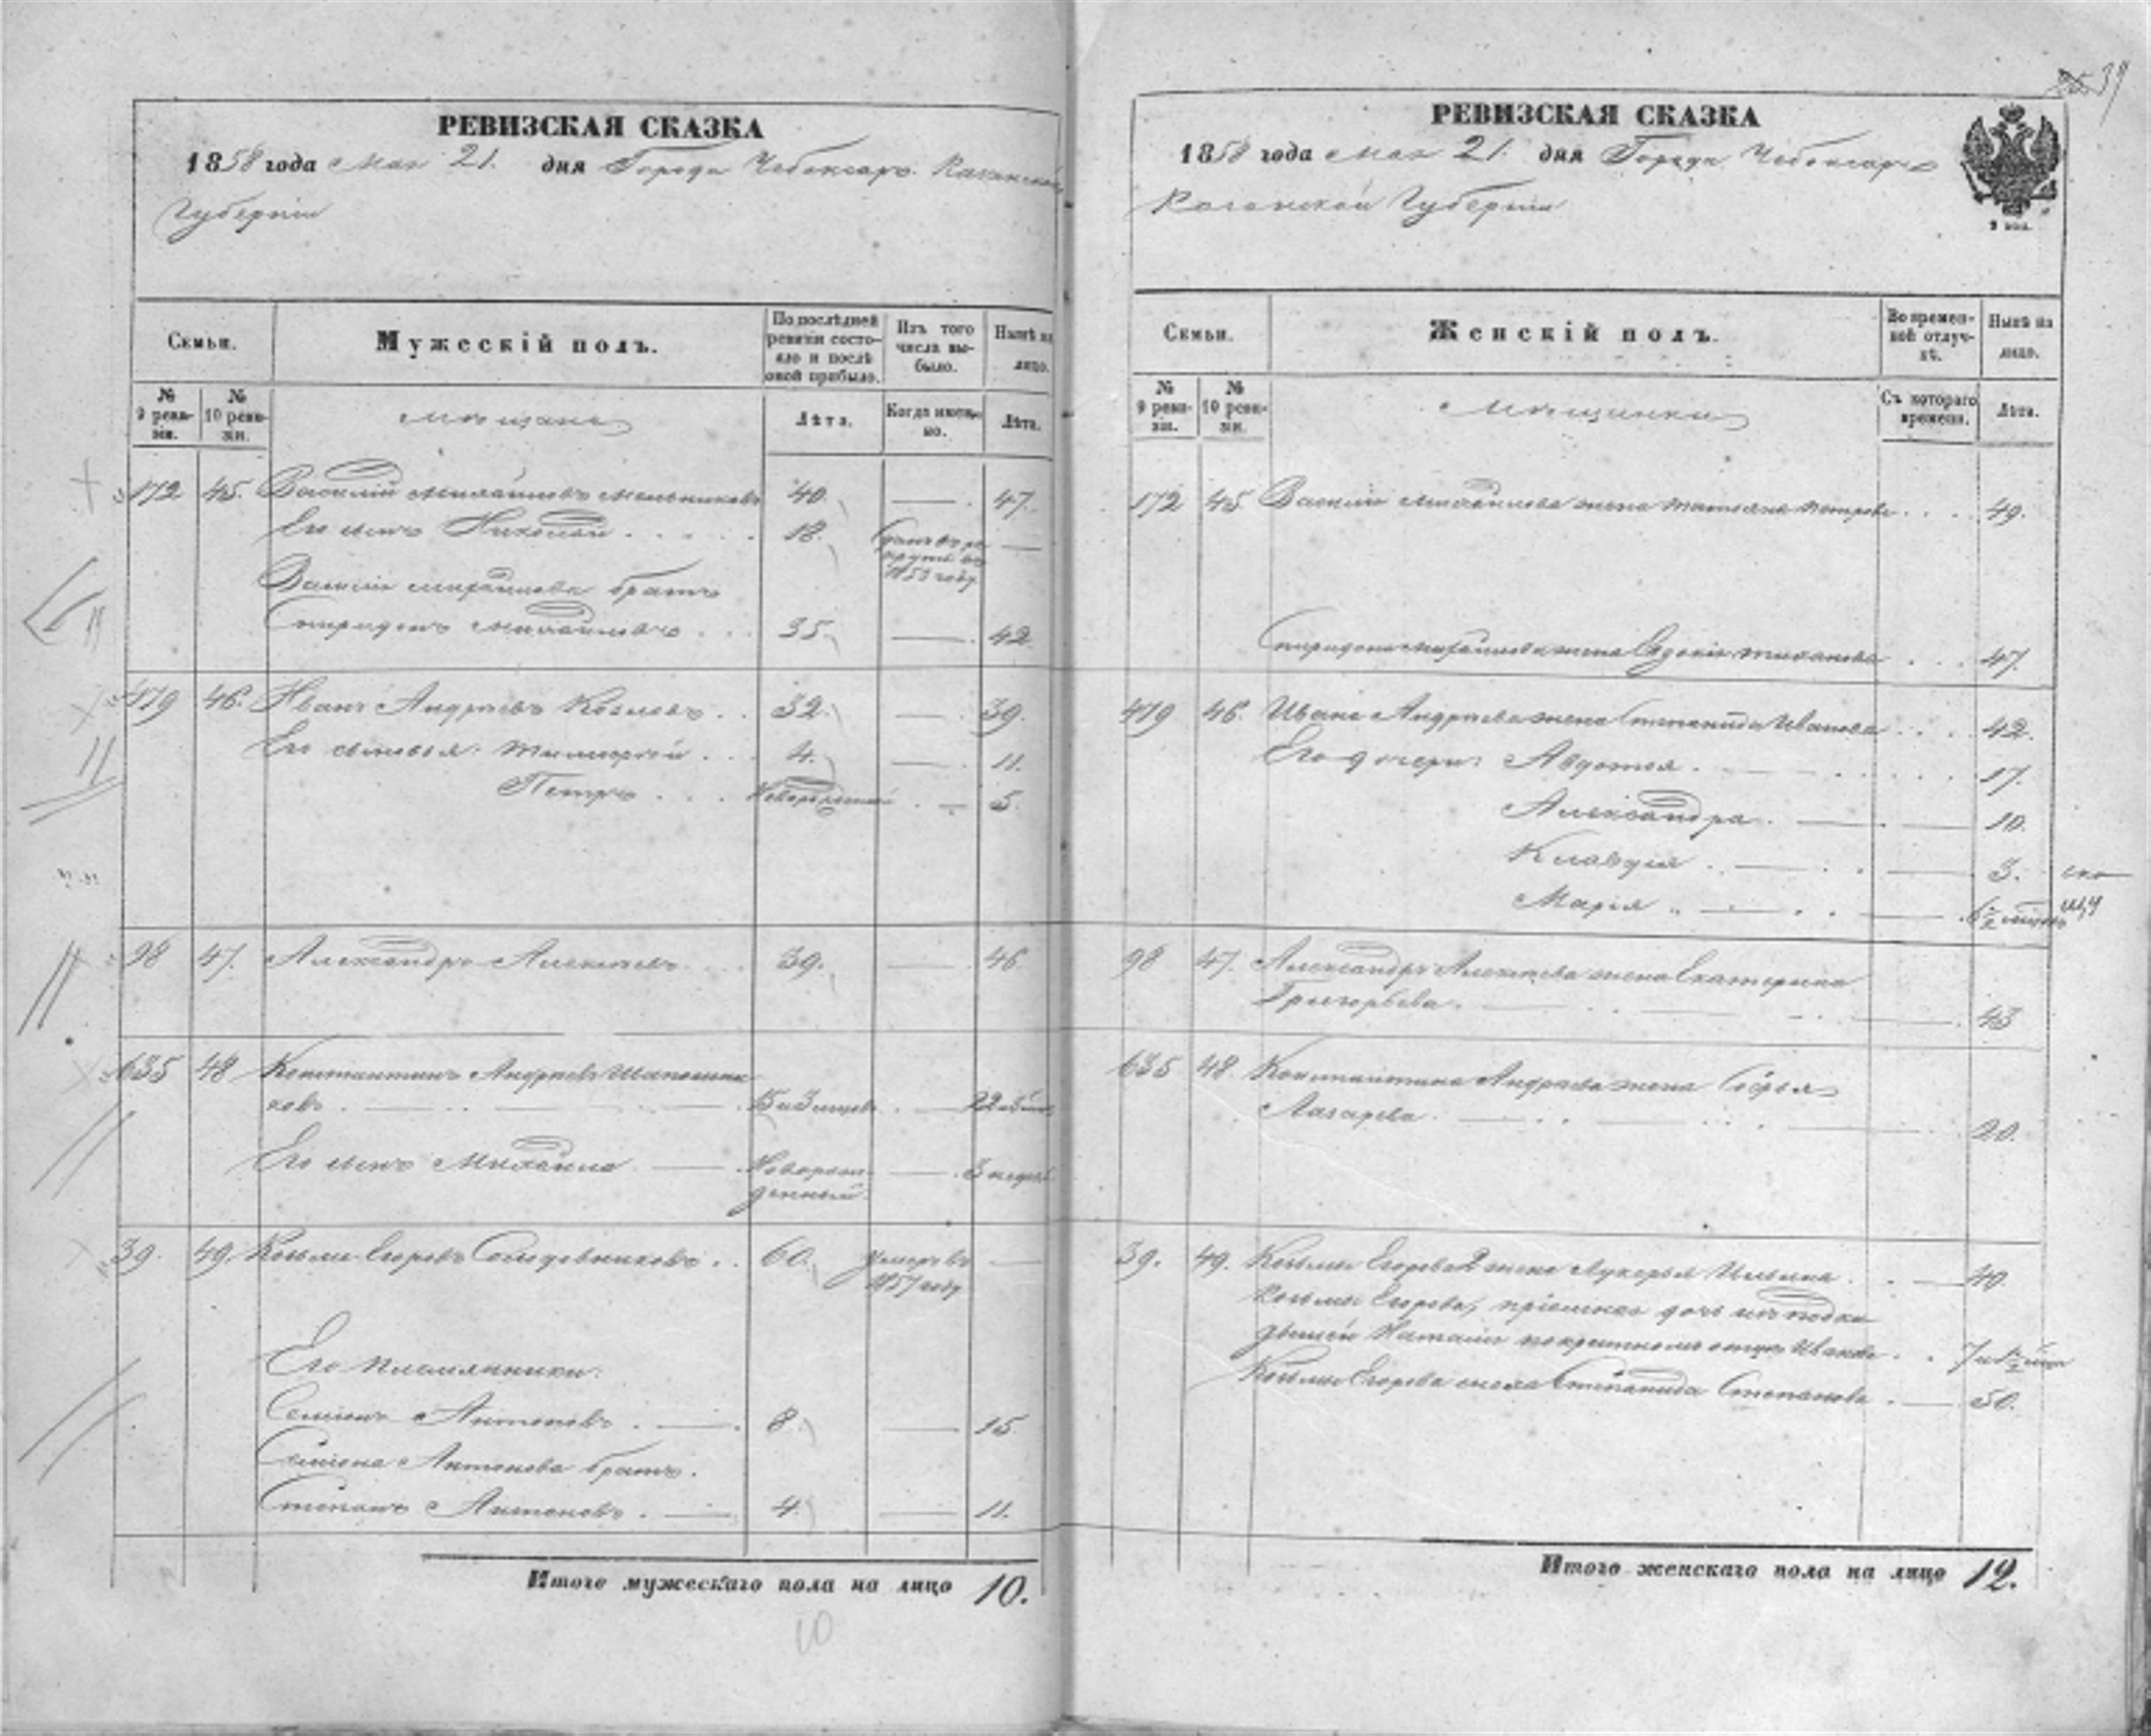 39
РЕВИЗСКАЯ СКАЗКА
1858 года Мая 21. дня Города Чебоксаръ Казанской
Губерніи
Семьи.
Мужескій полъ.
По послѣдней ревизіи состояло и послѣ оной прибыло.
Изъ того числа выбыло.
Нынѣ на лицо.
№ 9 ревизіи.
№ 10 ревизіи.
Мѣщане
Лѣта.
Когда именно.
Лѣта.
172 45. Василій Михайловъ Мельниковъ 40. 47.
Его сынъ Николай 18. Сданъ въ рекруты въ 1853 году
Василія Михайлова братъ
Спиридонъ Михайловъ 35. 42
479 46. Иванъ Андреевъ Козловъ 32. 39.
Его сыновья: Тимофей 4. 11.
Петръ Новорожденный 5.
98 47. Александръ Алексеевъ 39. 46
635 48 Константинъ Андреевъ Шапошни
ковъ 15 и 3 месяцев 22
Его сынъ Михаила Новорож
денный 3 недель
39. 49. Козьма Егоровъ Солодовниковъ 60. Умеръ въ
1857 году
Его племянники:
Семенъ Антоновъ 8. 15
Семена Антонова братъ.
Степанъ Антоновъ 4. 11.
Итого мужескаго пола на лицо 10.
10
РЕВИЗСКАЯ СКАЗКА
1858 года Мая 21. дня Города Чебоксаръ
Казанской Губерніи
Семьи.
Женскій полъ.
Во временной отлучкѣ.
Нынѣ на лицо.
№ 9 ревизіи.
№ 10 ревизіи.
Мѣщанки
Съ котораго времени.
Лѣта.
172 45 Василія Михайлова жена Татьяна Петрова 49.
Спиридона Михайлова жена Евдокія 47.
479 46. Ивана Андреева жена Степанида Иванова 42.
Его дочери: Авдотья 17.
Александра 10.
Клавдія 3.
Марія
98 47. Александра Алексеева жена Екатерина
Григорьева 43
635 48 Константина Андреева жена Софья
Лазарева 20.
39. 49. Козьмы Егорова 2 жена Лукерья Ильина 40.
Козьмы Егорова, пріемная дочь изъ подки
дышей Наталія по крестному отцу Иванова 7
Козьмы Егорова сноха Степанида Степанова 50.
Итого женскаго пола на лицо 12.